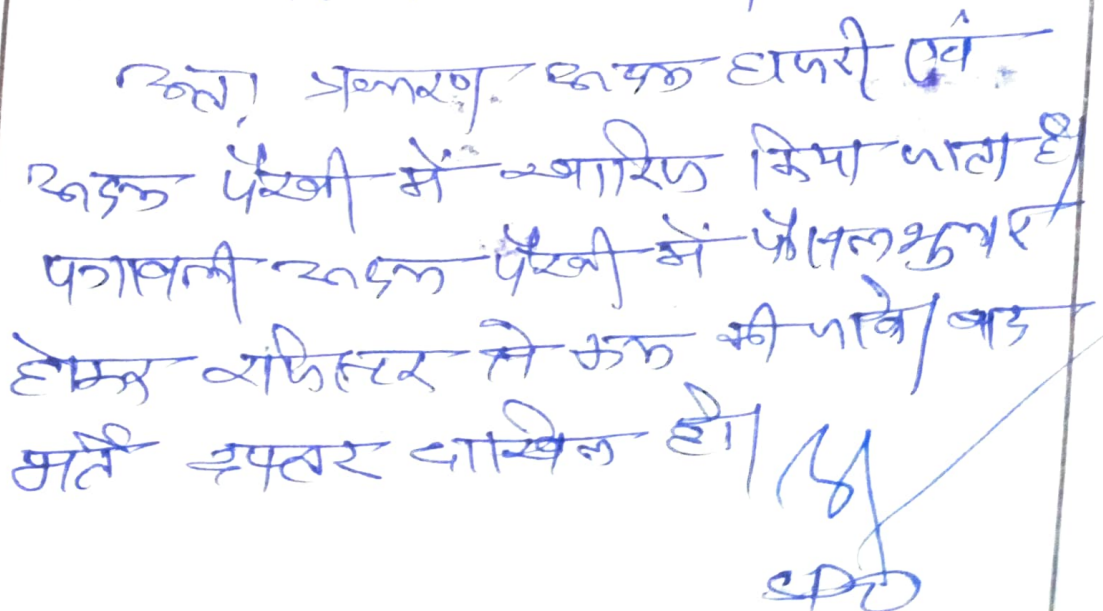 अतः प्रकरण अदम हाजरी एवं
अदम पैरवी में खारिज किया जाता है।
पत्रावली अदम पैरवी में फैसल शुमार
होकर रजिस्टर से कम की जावे। बाद
भर्ते दफ्तर दाखिल हो।
SDO